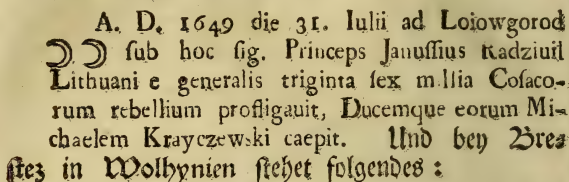 A. D. 1649 die 31. Iulii ad Loiowgorod
ſub hoc ſig. Princeps Januſſius Radziuil
Lithuani e generalis triginta ſex millia Coſaco-
rum rebellium profligauit, Ducemque eorum Mi-
chaelem Krayczewski caepit. Und bey Breſ
ſtez in Wolhynien ſtehet folgendes :